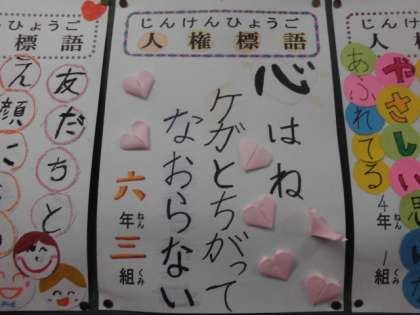 じんけんひょうご
人権標語
心はね
ケガとちがって
なおらない
六年三組
ねん
くみ
んひょうご
標語
友だちと
え顔に
じんけんひょ
人権標
やさしい思
あふれてる
4年1組
ねん
くみ